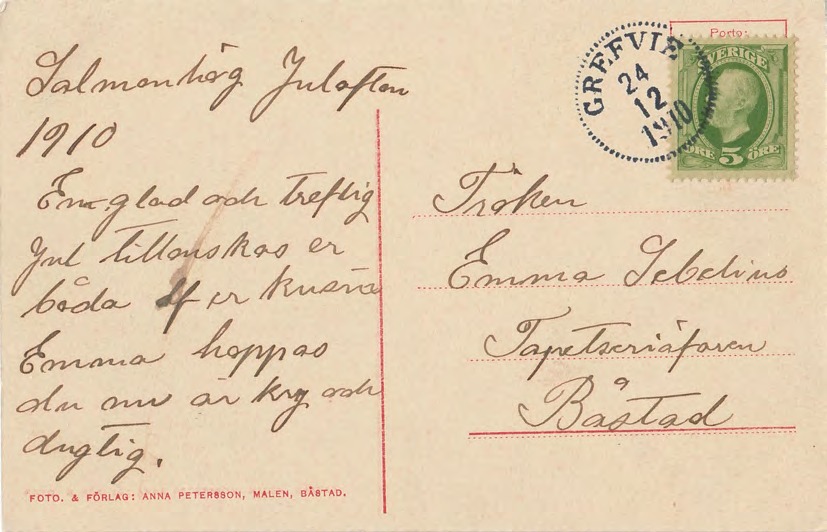 Salmonhög Julafton
1910
En glad och treflig
Jul tillönskas er
båda af er kusin
Emma hoppas
du nu är kry och
dugtig.
FOTO. & FÖRLAG: ANNA PETERSSON, MALEN, BÅSTAD.
Porto:
GREFVIE
24
12
1910
SVERIGE
5
ÖRE ÖRE
Fröken
Emma Sebelius
Tapetseriäfären
Båstad